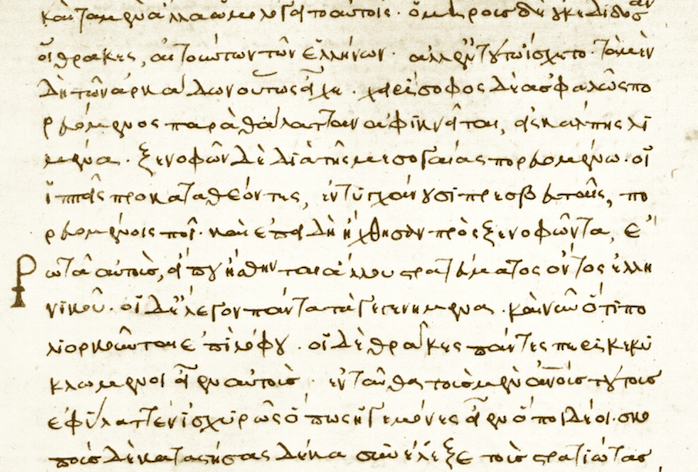 καὶ τὰ μὲν ἄλλα ὡμολόγητο αὐτοῖς· ὁμήρους δὲ οὐκ ἐδίδοσαν
οἱ θρᾶκες, αἰτούντων τῶν ἑλλήνων· ἀλλ' ἐν τούτῳ ἴσχετο· τὰ μὲν
δὴ τῶν ἀρκάδων οὕτως εἶχε· χειρίσοφος δὲ ἀσφαλῶς πο
ρευόμενος παρὰ θάλατταν ἀφικνεῖται, εἰς κάλπης λι
μένα· ξενοφῶν δὲ διὰ τῆς μεσογαίας πορευομένω· οἱ
ἱππεῖς προκαταθέοντες, ἐντυγχάνουσι πρεσβύταις, πο
ρευομένοις ποῖ· καὶ ἐπειδὴ ἤχθησαν πρὸς ξενοφῶντα, ἐ
ρωτᾶ αὐτοὺς, εἴ που ἤσθηνται ἄλλου στρατεύματος ὄντος ἑλλη
νικοῦ· οἱ δὲ ἔλεγον πάντα τὰ γεγενημένα· καὶ νῦν ὅτι πο
λιορκοῦνται ἐπὶ λόφου· οἱ δὲ θρᾶκες πάντες περικεκυ
κλωμένοι εἶεν αὐτοὺς· ἐνταῦθα τοὺς μὲν ἀνούς τούτους
ἐφύλαττεν ἰσχυρῶς ὅπως ἡγεμόνες εἶεν ὅποι δέοι· σκο
ποὺς δὲ καταστήσας δέκα συνέλεξε τοὺς στρατιώτας